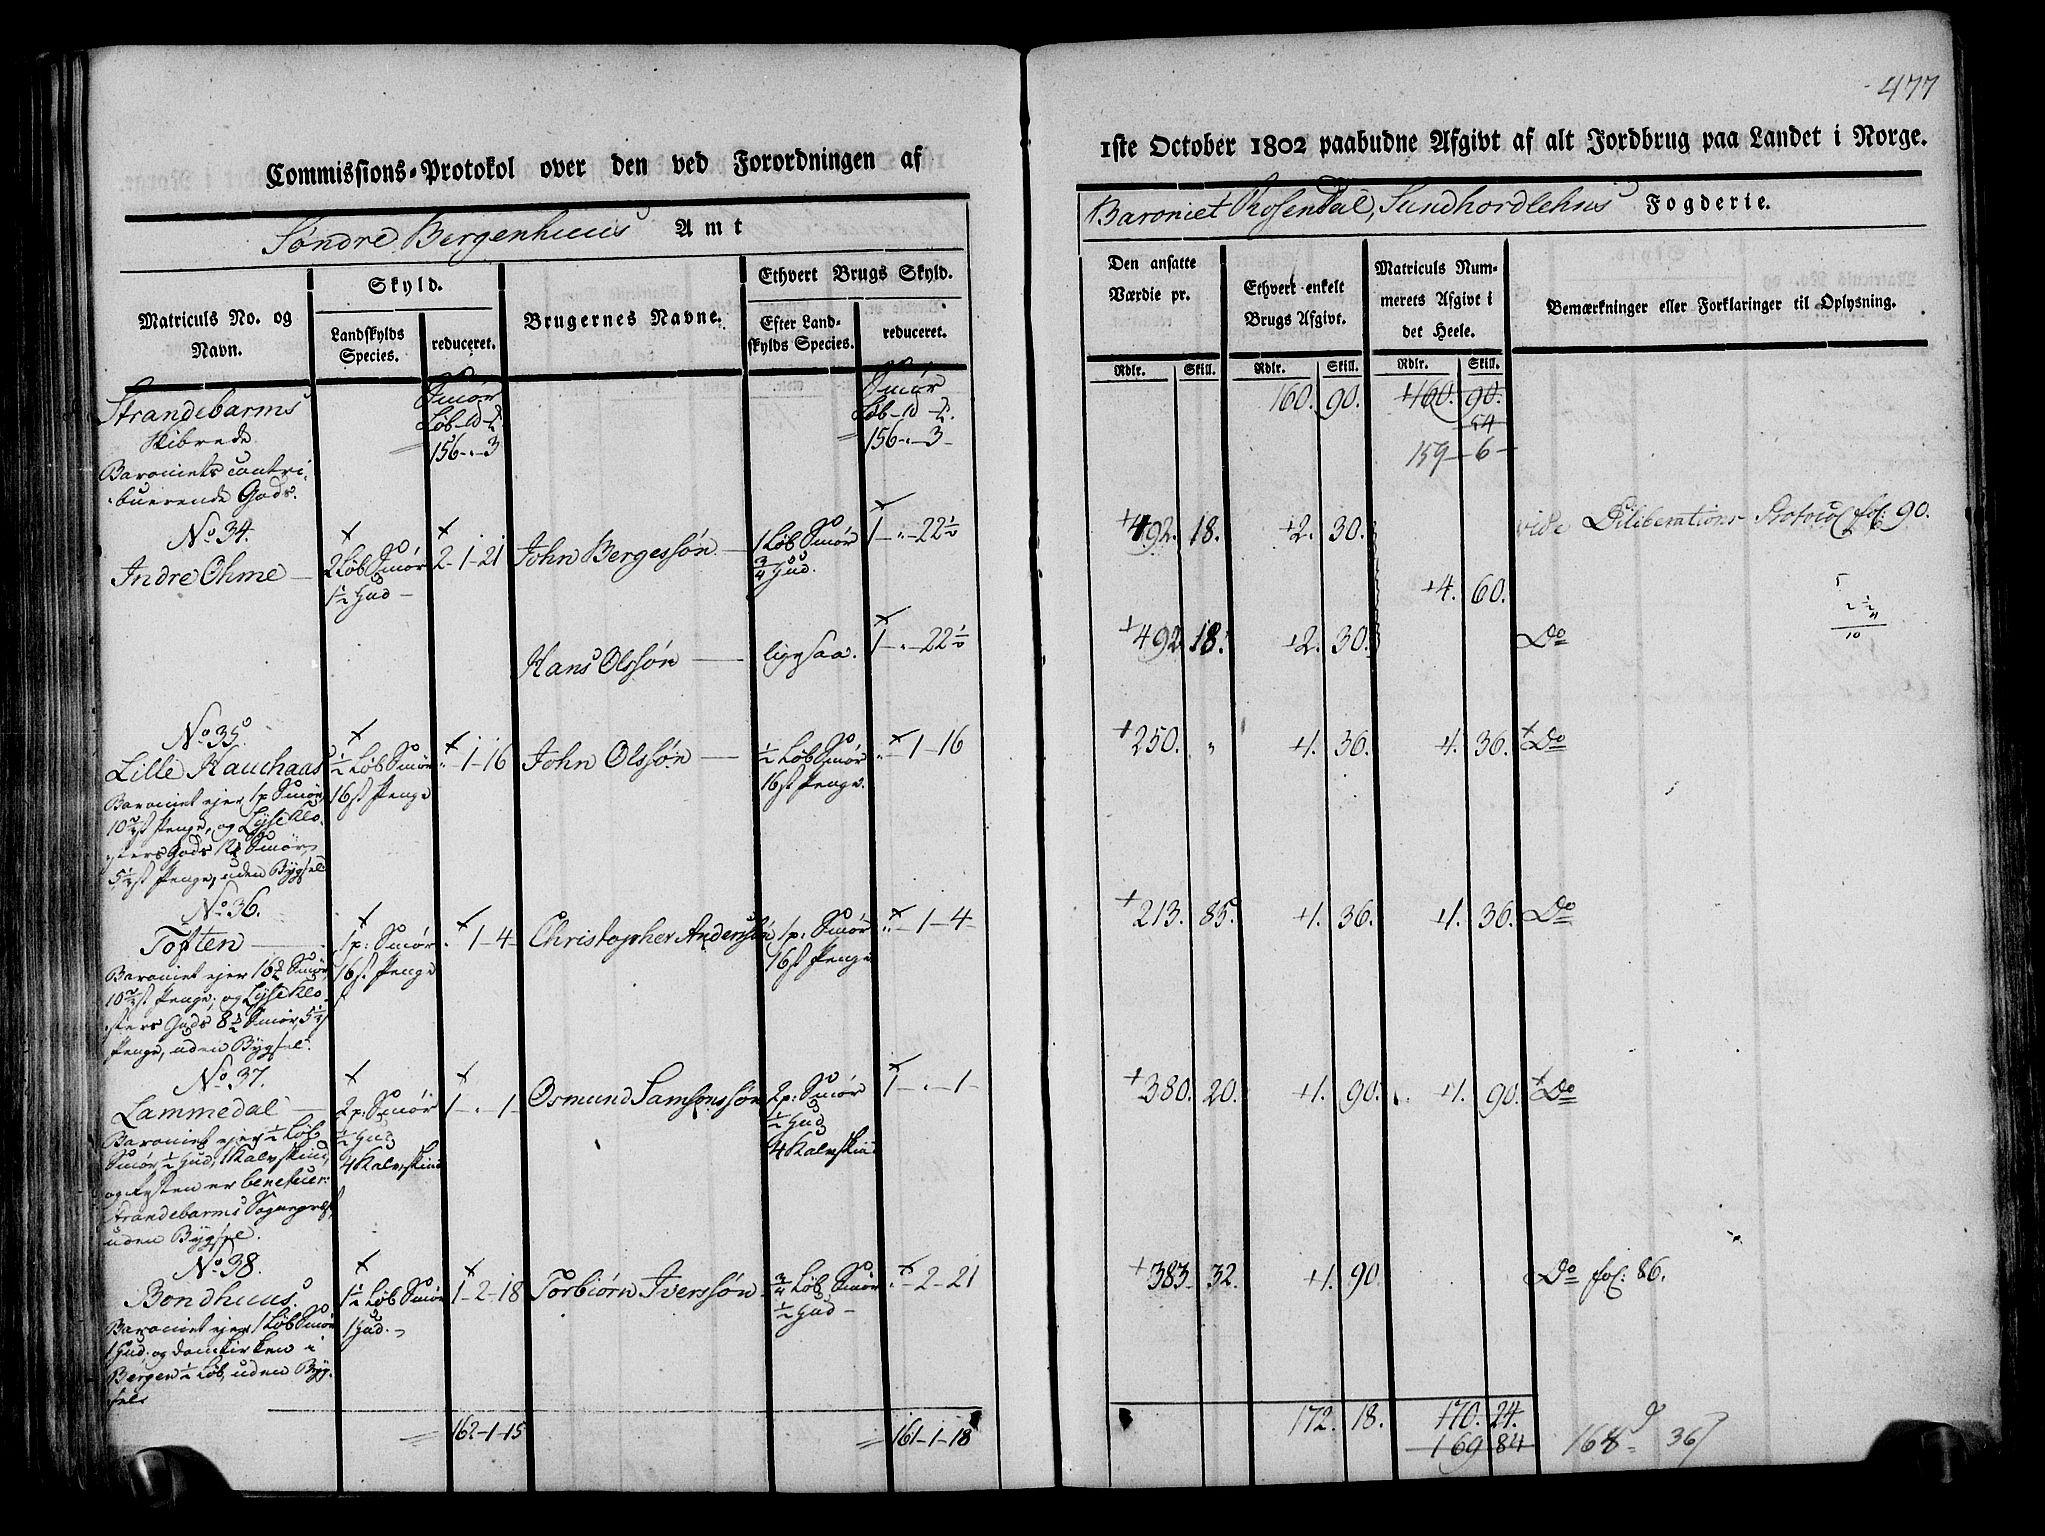 477
Commissions-Protokol over den ved Forordningen af
1ste October 1802 paabudne Afgivt af alt Jordbrug paa Landet i Norge.
Søndre Bergenhuus Amt
Baroniet Rosendal, Sundhordlehns Fogderie.
Matriculs No. og Navn.
Skyld.
Landskylds Species.
reduceret.
Brugernes Navne.
Ethvert Brugs Skyld.
Efter Landskylds Species.
reduceret.
Den ansatte Værdie pr.
Ethvert enkelt Brugs Afgivt.
Matriculs Nummerets Afgivt i det Heele.
Bemærkninger eller Forklaringer til Oplysning.
Rdlr. Skill. Rdlr. Skill. Rdlr. Skill.
Strandebarms
Skibrede
Baroniets contri-
buerende Gods.
Smør
Løb
156-"-3
Smør
Løb
156-"-3
160. 90. 160. 90.
54
159-6-
No 34.
Indre Ohme
2 Løb Smør
1½ Hud
2-1-21
John Bergessøn
1 Løb Smør
¾ Hud.
1-"-22½
492. 18. 2. 30.
vide Deliberations Protocol fol: 90.
4. 60.
Hans Olssøn
ligesaa.
1-"-22½
492 18. 2. 30.
Do
No 35.
Lille Hauchaas
Baroniet ejer 1p Smør
10⅔ß Penge, og Lyseklo-
sters Gods 12 Smør,
5⅓ß Penge, uden Bygsel
½ Løb Smør
16ß Penge
"-1-16
John Olssøn
½ Løb Smør
16ß Penge.
"-1-16
250. " 1. 36. 1. 36. Do
No 36.
Toften
Baroniet ejer 16 Smør,
10⅔ß Penge, og Lyseklo-
sters Gods 8 Smør, 5⅓ß
Penge, uden Bygsel.
1p: Smør
16ß Penge
"-1-4
Christopher Anderssøn
1p: Smør
16ß Penge
"-1-4
213. 85. 1. 36. 1. 36. Do
No 37.
Lammedal
Baroniet ejer ½ Løb
Smør, ½ Hud, 1 Kalvskind,
og Resten er beneficeret
Strandebarms Sognepræst,
uden Bygsel.
2p: Smør
½ Hud
4 Kalvskind
1-"-1
Osmund Samsonssøn
2p: Smør
½ Hud
4 Kalvskind
1-"-1-
380. 20. 1. 90. 1. 90. Do
No 38.
Bondhuus.
Baroniet ejer 1 Løb Smør
1 Hud, og Domkirken i
Bergen ½ Løb, uden Byg-
sel
1½ Løb Smør
1 Hud.
1-2-18
Torbiørn Iverssøn
¾ Løb Smør
½ Hud
"-2-21
383. 32. 1. 90.
Do fol: 86.
162-1-15
161-1-18
172. 18. 170. 24.
169 84
168 36